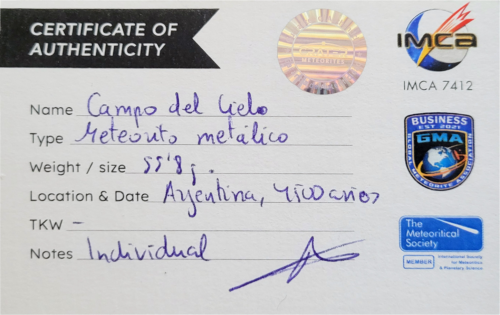 CERTIFICATE OF
AUTHENTICITY
METEORITES
IMCA
IMCA 7412
Name Campo del Cielo
Type Meteorito metálico
Weight / size 55'8 g.
Location & Date Argentina, 4500 años
TKW -
Notes Individual
BUSINESS
EST 2021
GMA
GLOBAL METEORITE ASSOCIATION
The
Meteoritical
Society
MEMBER
International Society
for Meteoritics
& Planetary Science